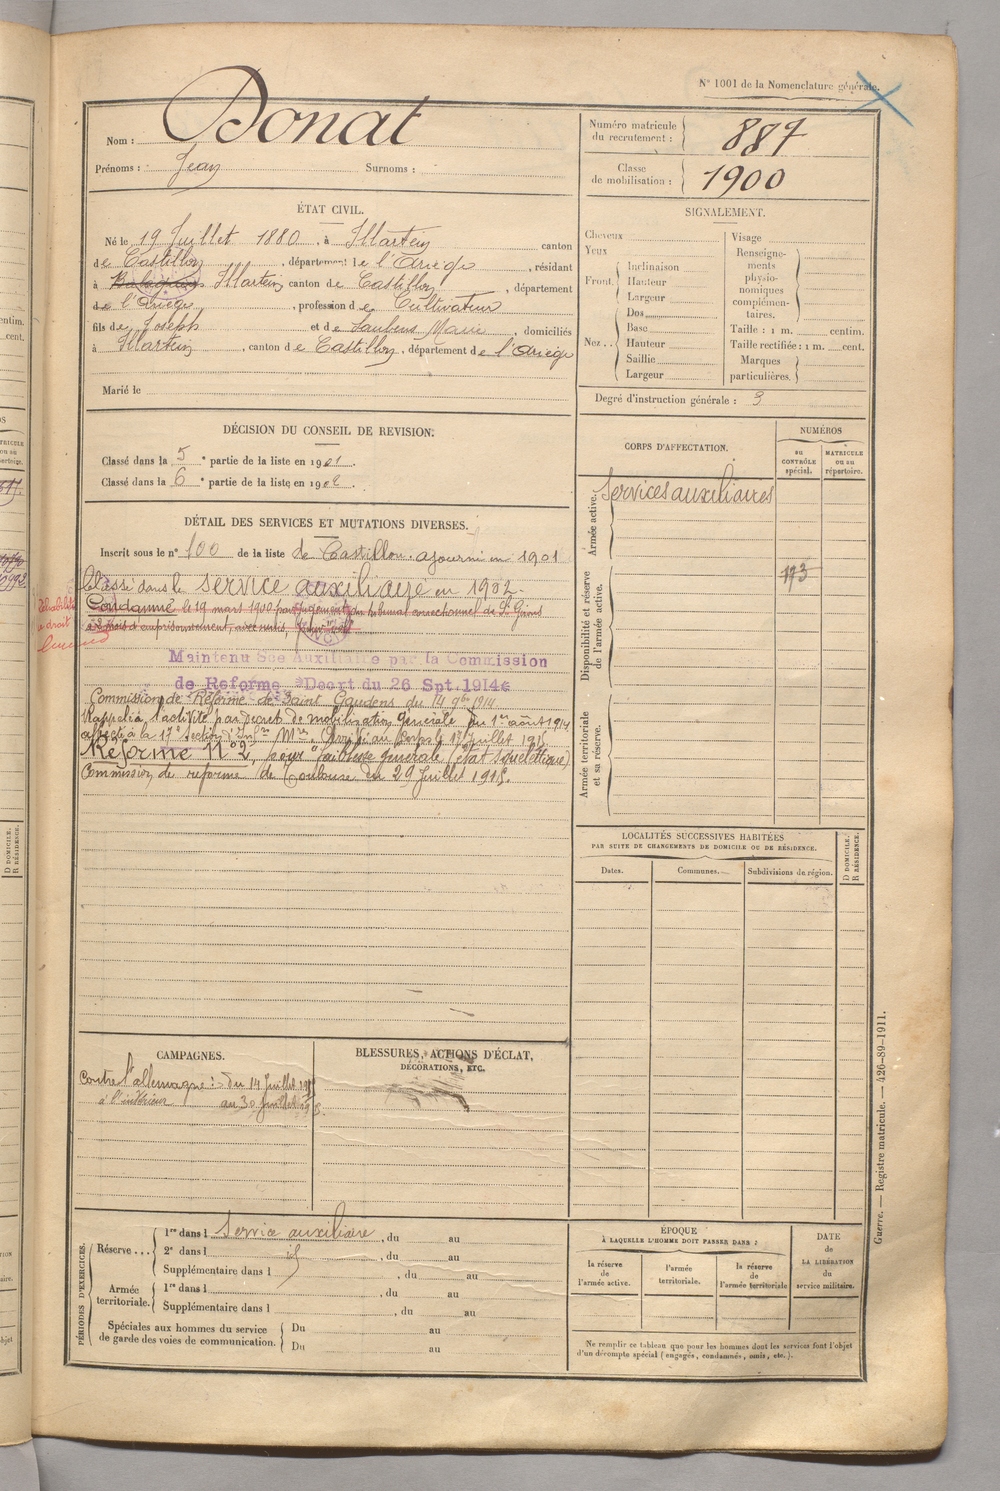 N° 1001 de la Nomenclature générale.
Nom : Donat
Prénoms : Jean Surnoms :
Numéro matricule du recrutement : 887
Classe de mobilisation : 1900
ÉTAT CIVIL.
Né le 19 Juillet 1880, à Illartein canton
de Castillon, département de l'Ariège, résidant
à Balaguères Illartein canton de Castillon, département
de l'Ariège, profession de Cultivateur
fils de Joseph et de Laubens Marie, domiciliés
à Illartein, canton de Castillon, département de l'Ariège
Marié le
SIGNALEMENT.
Cheveux
Yeux
Front. Inclinaison
Hauteur
Largeur
Nez.. Dos
Base
Hauteur
Saillie
Largeur
Visage
Renseignements physionomiques complémentaires.
Taille : 1 m. centim.
Taille rectifiée : 1 m. cent.
Marques particulières.
Degré d'instruction générale : 3
DÉCISION DU CONSEIL DE REVISION.
Classé dans la 5e partie de la liste en 1901.
Classé dans la 6e partie de la liste en 1902.
CORPS D'AFFECTATION.
NUMÉROS
au CONTRÔLE spécial.
MATRICULE ou au répertoire.
Armée active.
Services auxiliaires
Disponibilité et réserve de l'armée active.
Armée territoriale et sa réserve.
DÉTAIL DES SERVICES ET MUTATIONS DIVERSES.
Inscrit sous le n° 100 de la liste de Castillon. ajourné en 1901
Classé dans le service auxiliaire en 1902.
Condamné le 19 mars 1900 par jugement du tribunal correctionnel de St Girons
à 2 mois d'emprisonnement, avec sursis, pour
Maintenu Sce Auxiliaire par la Commission
de Reforme Décrt du 26 Spt. 1914
Commission de Réforme de Saint Gaudens du 14 9bre 1914
Rappelé à l'activité par décret de mobilisation générale du 1er août 1914
affecté à la 17e Section d'Infres Mres. Arrivé au corps le 17 Juillet 1915
Réformé N°2, pour "faiblesse générale (état squelettique)
Commission de réforme de Toulouse du 29 Juillet 1915.
LOCALITÉS SUCCESSIVES HABITÉES
PAR SUITE DE CHANGEMENTS DE DOMICILE OU DE RÉSIDENCE.
Dates. Communes. Subdivisions de région.
D DOMICILE. R RÉSIDENCE.
CAMPAGNES.
Contre l'allemagne : du 14 Juillet 1915
à l'intérieur au 30 Juillet 1915.
BLESSURES, ACTIONS D'ÉCLAT,
DÉCORATIONS, ETC.
PÉRIODES D'EXERCICES.
Réserve... 1re dans l Service auxiliaire, du au
2e dans l, du au
Supplémentaire dans l, du au
Armée territoriale. 1re dans l, du au
Supplémentaire dans l, du au
Spéciales aux hommes du service de garde des voies de communication. Du au
Du au
ÉPOQUE
À LAQUELLE L'HOMME DOIT PASSER DANS :
la réserve de l'armée active.
l'armée territoriale.
la réserve de l'armée territoriale
DATE de LA LIBÉRATION du service militaire.
Ne remplir ce tableau que pour les hommes dont les services font l'objet
d'un décompte spécial (engagés, condamnés, omis, etc.).
Guerre. — Registre matricule. — 426-89-1911.